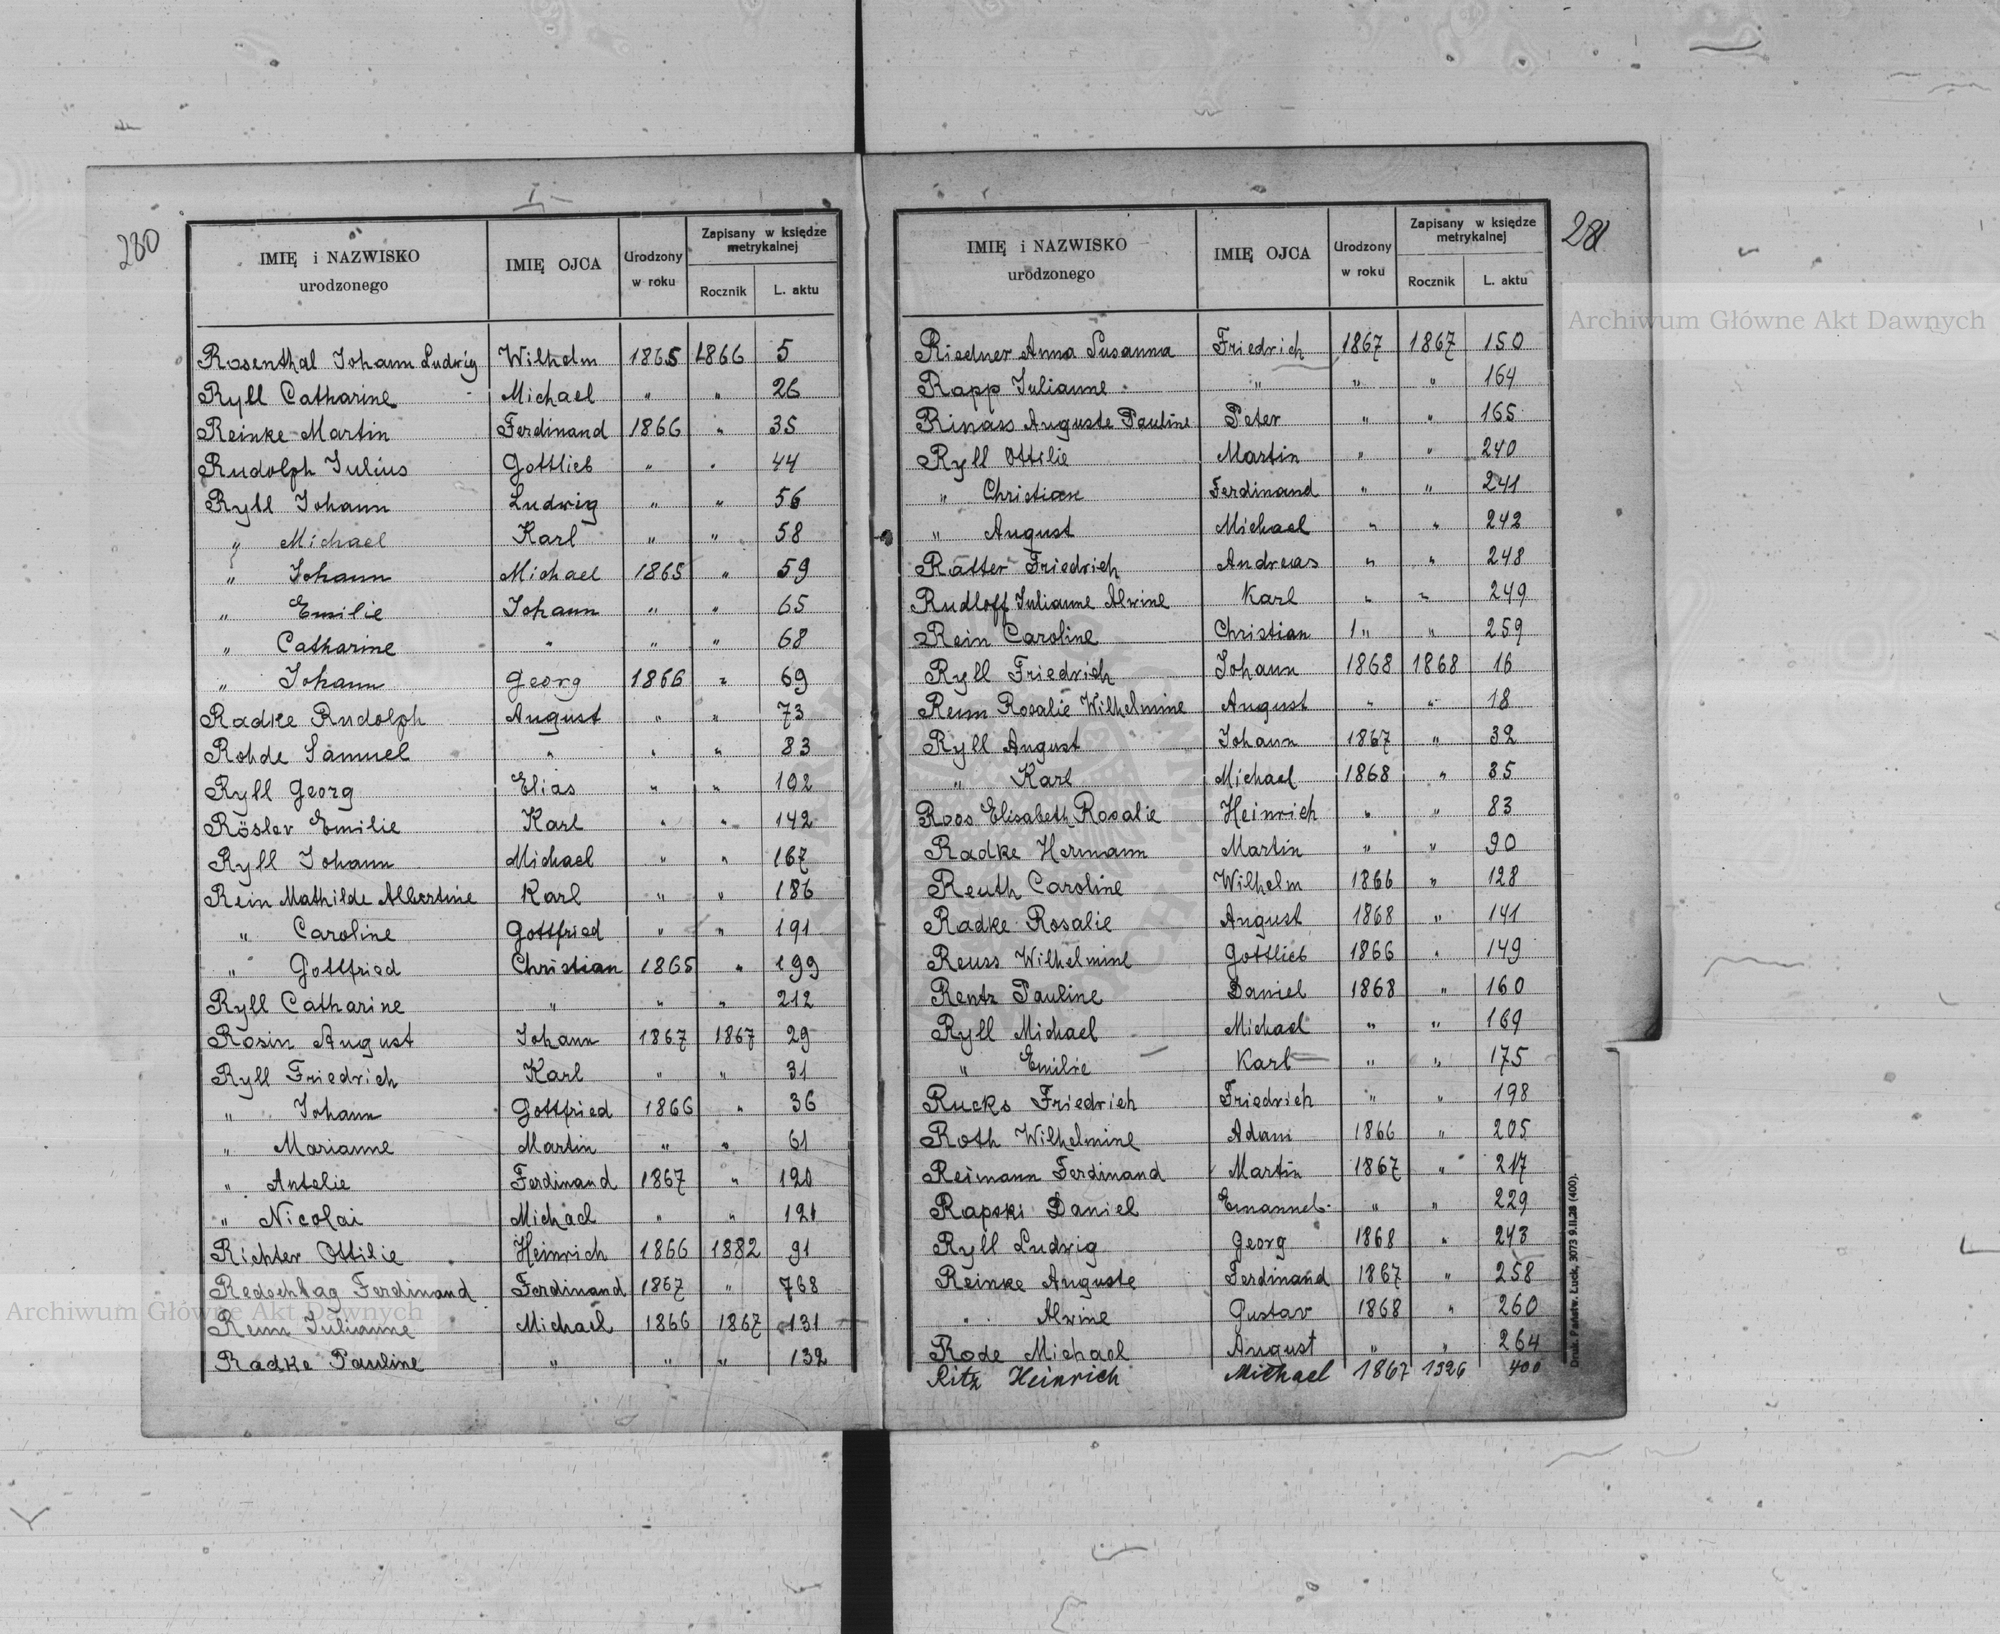 280
IMIĘ i NAZWISKO urodzonego | IMIĘ OJCA | Urodzony w roku | Zapisany w księdze metrykalnej
Rocznik | L. aktu
Rosenthal Johann Ludwig | Wilhelm | 1865 | 1866 | 5
Ryll Catharine | Michael | " | " | 26
Reinke Martin | Ferdinand | 1866 | " | 35
Rudolph Julius | Gottlieb | " | " | 44
Ryll Johann | Ludwig | " | " | 56
" Michael | Karl | " | " | 58
" Johann | Michael | 1865 | " | 59
" Emilie | Johann | " | " | 65
" Catharine | " | " | " | 68
" Johann | Georg | 1866 | " | 69
Radke Rudolph | August | " | " | 73
Rohde Samuel | " | " | " | 83
Ryll Georg | Elias | " | " | 102
Rösler Emilie | Karl | " | " | 142
Ryll Johann | Michael | " | " | 167
Rein Mathilde Albertine | Karl | " | " | 186
" Caroline | Gottfried | " | " | 191
" Gottfried | Christian | 1865 | " | 199
Ryll Catharine | " | " | " | 212
Rosin August | Johann | 1867 | 1867 | 29
Ryll Friedrich | Karl | " | " | 31
" Johann | Gottfried | 1866 | " | 36
" Marianne | Martin | " | " | 61
" Antelie | Ferdinand | 1867 | " | 120
" Nicolai | Michael | " | " | 121
Richter Ottilie | Heinrich | 1866 | 1882 | 91
Redschlag Ferdinand | Ferdinand | 1867 | " | 768
Remm Julianne | Michael | 1866 | 1867 | 131
Radke Pauline | " | " | " | 132
281
IMIĘ i NAZWISKO urodzonego | IMIĘ OJCA | Urodzony w roku | Zapisany w księdze metrykalnej
Rocznik | L. aktu
Riedner Anna Susanna | Friedrich | 1867 | 1867 | 150
Rapp Julianne | " | " | " | 164
Rinass Auguste Pauline | Peter | " | " | 165
Ryll Ottilie | Martin | " | " | 240
" Christian | Ferdinand | " | " | 241
" August | Michael | " | " | 242
Ratter Friedrich | Andreas | " | " | 248
Rudloff Julianne Alwine | Karl | " | " | 249
Rein Caroline | Christian | " | " | 259
Ryll Friedrich | Johann | 1868 | 1868 | 16
Remm Rosalie Wilhelmine | August | " | " | 18
Ryll August | Johann | 1867 | " | 32
" Karl | Michael | 1868 | " | 35
Roos Elisabeth Rosalie | Heinrich | " | " | 83
Radke Hermann | Martin | " | " | 90
Reuth Caroline | Wilhelm | 1866 | " | 128
Radke Rosalie | August | 1868 | " | 141
Reuss Wilhelmine | Gottlieb | 1866 | " | 149
Rentz Pauline | Daniel | 1868 | " | 160
Ryll Michael | Michael | " | " | 169
" Emilie | Karl | " | " | 175
Rucks Friedrich | Friedrich | " | " | 198
Roth Wilhelmine | Adam | 1866 | " | 205
Reimann Ferdinand | Martin | 1867 | " | 217
Rapski Daniel | Emanuel | " | " | 229
Ryll Ludwig | Georg | 1868 | " | 243
Reinke Auguste | Ferdinand | 1867 | " | 258
" Alwine | Gustav | 1868 | " | 260
Rode Michael | August | " | " | 264
Ritz Heinrich | Michael | 1867 | 1926 | 400
Druk. Państw. Łuck, 3073 9.II.28 (400).
Archiwum Główne Akt Dawnych
Archiwum Główne Akt Dawnych